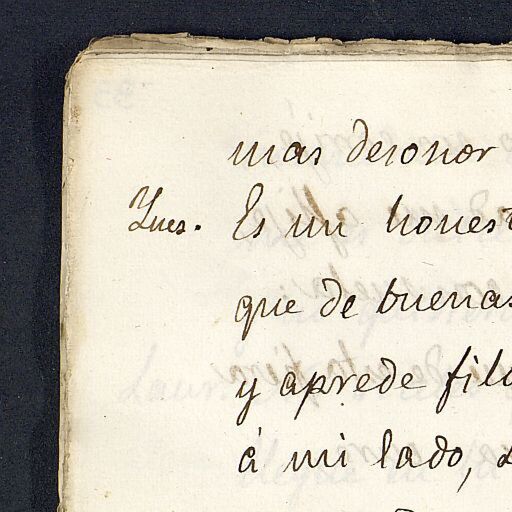 mas desonor
Ynes. Es un honest
que de buenas
y aprede filo
á mi lado,